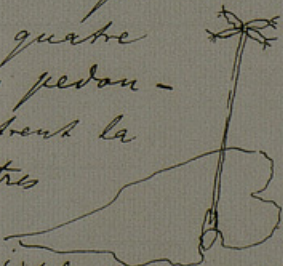 quatre
pedon-
trent la
tres